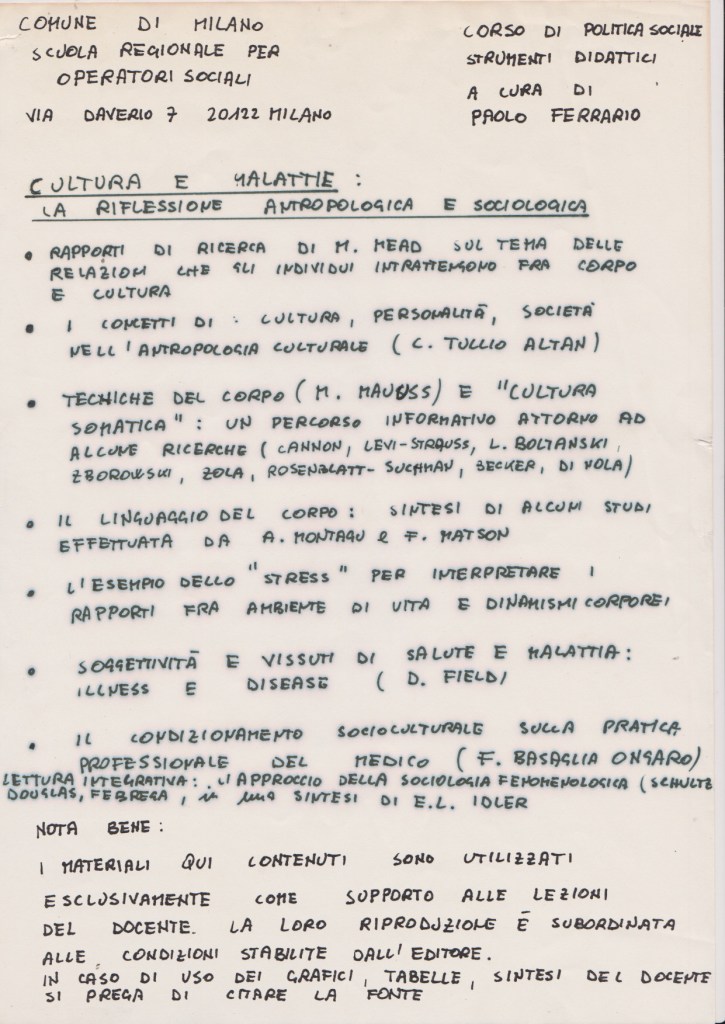 COMUNE DI MILANO
SCUOLA REGIONALE PER
OPERATORI SOCIALI
VIA DAVERIO 7 20122 MILANO
CORSO DI POLITICA SOCIALE
STRUMENTI DIDATTICI
A CURA DI
PAOLO FERRARIO
CULTURA E MALATTIE :
LA RIFLESSIONE ANTROPOLOGICA E SOCIOLOGICA
• RAPPORTI DI RICERCA DI M. MEAD SUL TEMA DELLE
RELAZIONI CHE GLI INDIVIDUI INTRATTENGONO FRA CORPO
E CULTURA
• I CONCETTI DI : CULTURA, PERSONALITÀ, SOCIETÀ
NELL'ANTROPOLOGIA CULTURALE ( C. TULLIO ALTAN )
• TECNICHE DEL CORPO ( M. MAUSS ) E "CULTURA
SOMATICA" : UN PERCORSO INFORMATIVO ATTORNO AD
ALCUNE RICERCHE ( CANNON, LEVI-STRAUSS, L. BOLTANSKI,
ZBOROWSKI, ZOLA, ROSENBLATT-SUCHMAN, BECKER, DI NOLA)
• IL LINGUAGGIO DEL CORPO : SINTESI DI ALCUNI STUDI
EFFETTUATA DA A. MONTAGU e F. MATSON
• L'ESEMPIO DELLO "STRESS" PER INTERPRETARE I
RAPPORTI FRA AMBIENTE DI VITA E DINAMISMI CORPOREI
• SOGGETTIVITÀ E VISSUTI DI SALUTE E MALATTIA :
ILLNESS E DISEASE ( D. FIELD)
• IL CONDIZIONAMENTO SOCIOCULTURALE SULLA PRATICA
PROFESSIONALE DEL MEDICO ( F. BASAGLIA ONGARO)
LETTURA INTEGRATIVA : L'APPROCCIO DELLA SOCIOLOGIA FENOMENOLOGICA (SCHULTZ
DOUGLAS, FEBREGA, in una SINTESI DI E.L. IDLER
NOTA BENE :
I MATERIALI QUI CONTENUTI SONO UTILIZZATI
ESCLUSIVAMENTE COME SUPPORTO ALLE LEZIONI
DEL DOCENTE. LA LORO RIPRODUZIONE È SUBORDINATA
ALLE CONDIZIONI STABILITE DALL'EDITORE.
IN CASO DI USO DEI GRAFICI, TABELLE, SINTESI DEL DOCENTE
SI PREGA DI CITARE LA FONTE